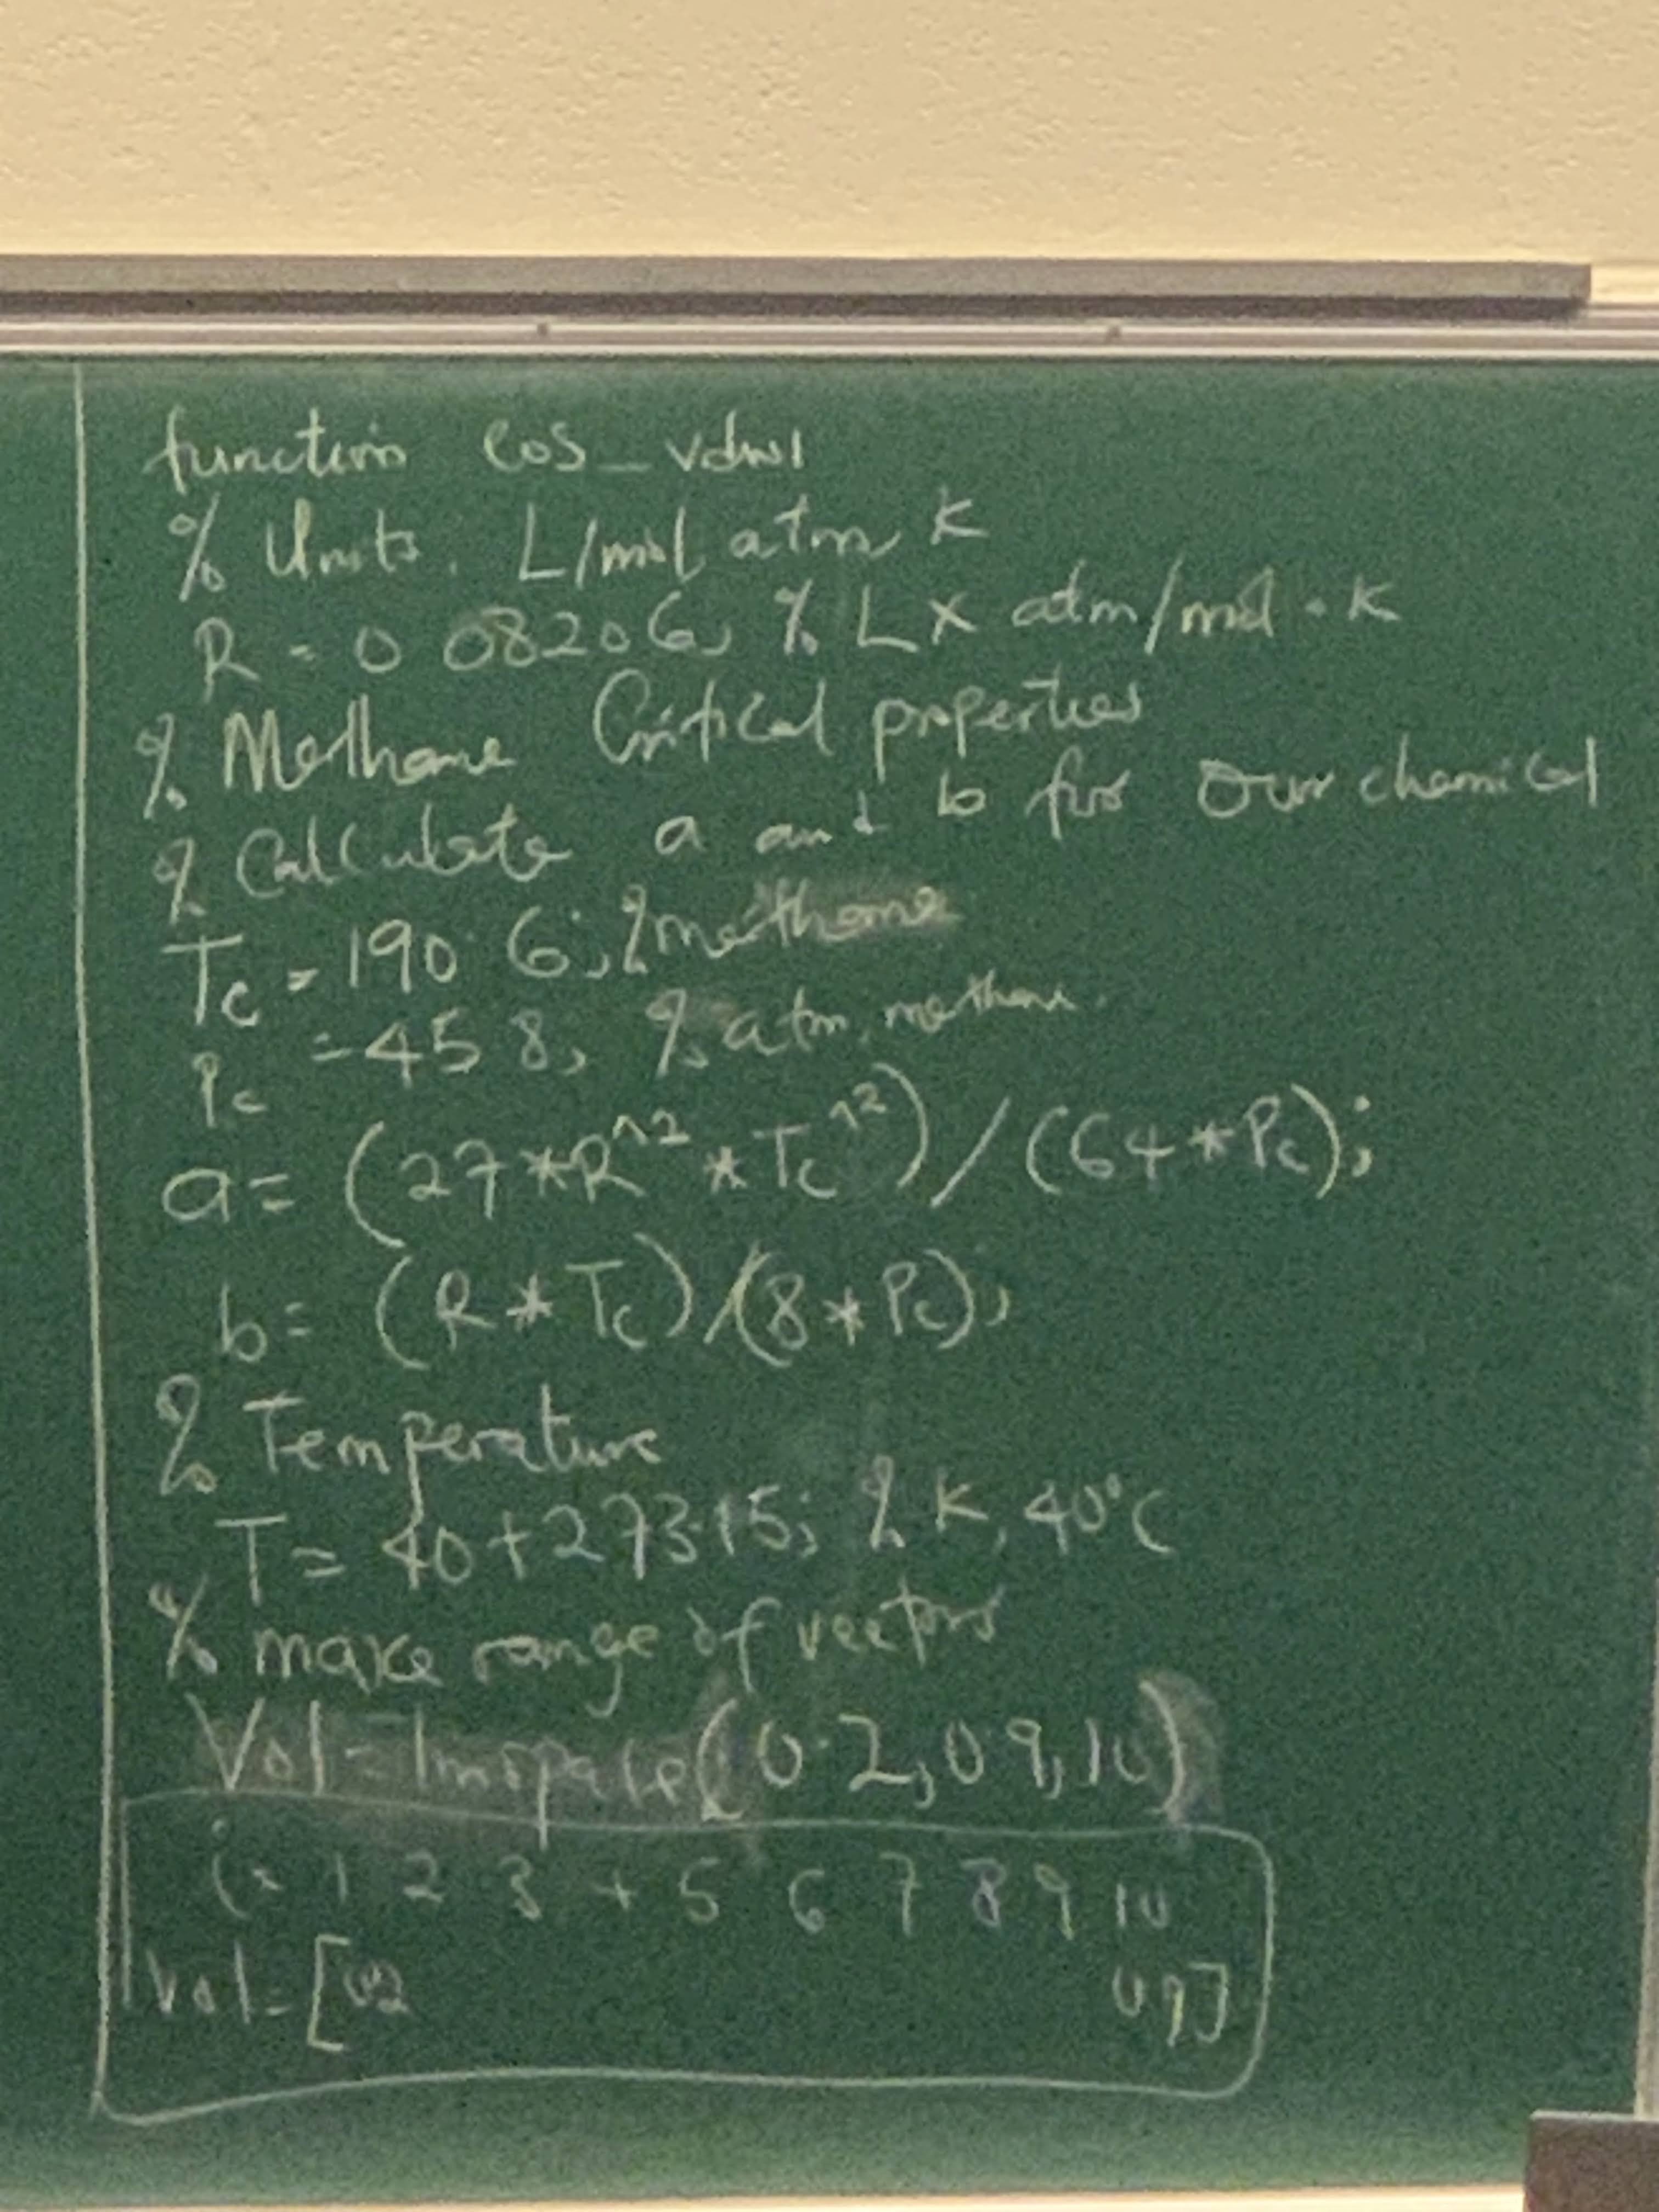 function eos_vdw1
% Units. L/mol, atm, K
R = 0.08206; % L x atm/mol · K
% Methane Critical properties
% Calculate a and b for our chemical
Tc = 190.6; % methane
Pc = 45.8; % atm, methane.
a = (27*R^2*Tc^2)/(64*Pc);
b = (R*Tc)/(8*Pc);
% Temperature
T = 40+273.15; % K, 40°C
% make range of vectors
Vol = linspace(0.2,0.9,10)
i = 1 2 3 4 5 6 7 8 9 10
Vol = [0.2 0.9]